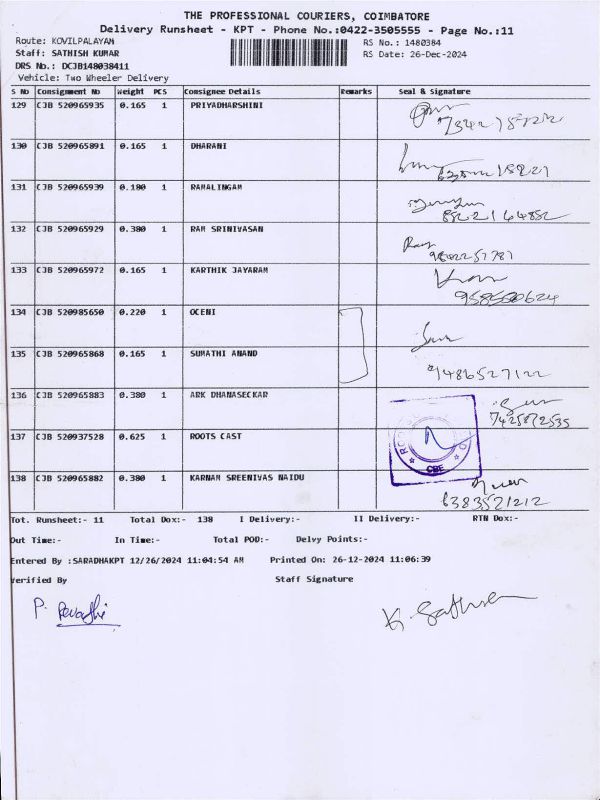 THE PROFESSIONAL COURIERS, COIMBATORE
Delivery Runsheet - KPT - Phone No.:0422-3505555 - Page No.:11
Route: KOVILPALAYAM
RS No.: 1480384
Staff: SATHISH KUMAR
RS Date: 26-Dec-2024
DRS No.: DCJB148038411
Vehicle: Two Wheeler Delivery
S No Consignment No Weight PCS Consignee Details Remarks Seal & Signature
129 CJB 520965935 0.165 1 PRIYADHARSHINI
130 CJB 520965891 0.165 1 DHARANI
131 CJB 520965939 0.180 1 RAMALINGAM
132 CJB 520965929 0.380 1 RAM SRINIVASAN
133 CJB 520965972 0.165 1 KARTHIK JAYARAM
134 CJB 520985650 0.220 1 OCENI
135 CJB 520965868 0.165 1 SUMATHI ANAND
9486527122
136 CJB 520965883 0.380 1 ARK DHANASECKAR
137 CJB 520937528 0.625 1 ROOTS CAST
CBE
138 CJB 520965882 0.380 1 KARNAM SREENIVAS NAIDU
6383521212
Tot. Runsheet:- 11 Total Dox:- 138 I Delivery:- II Delivery:- RTN Dox:-
Out Time:- In Time:- Total POD:- Delvy Points:-
Entered By :SARADHAKPT 12/26/2024 11:04:54 AM Printed On: 26-12-2024 11:06:39
Verified By Staff Signature
P. Revathi